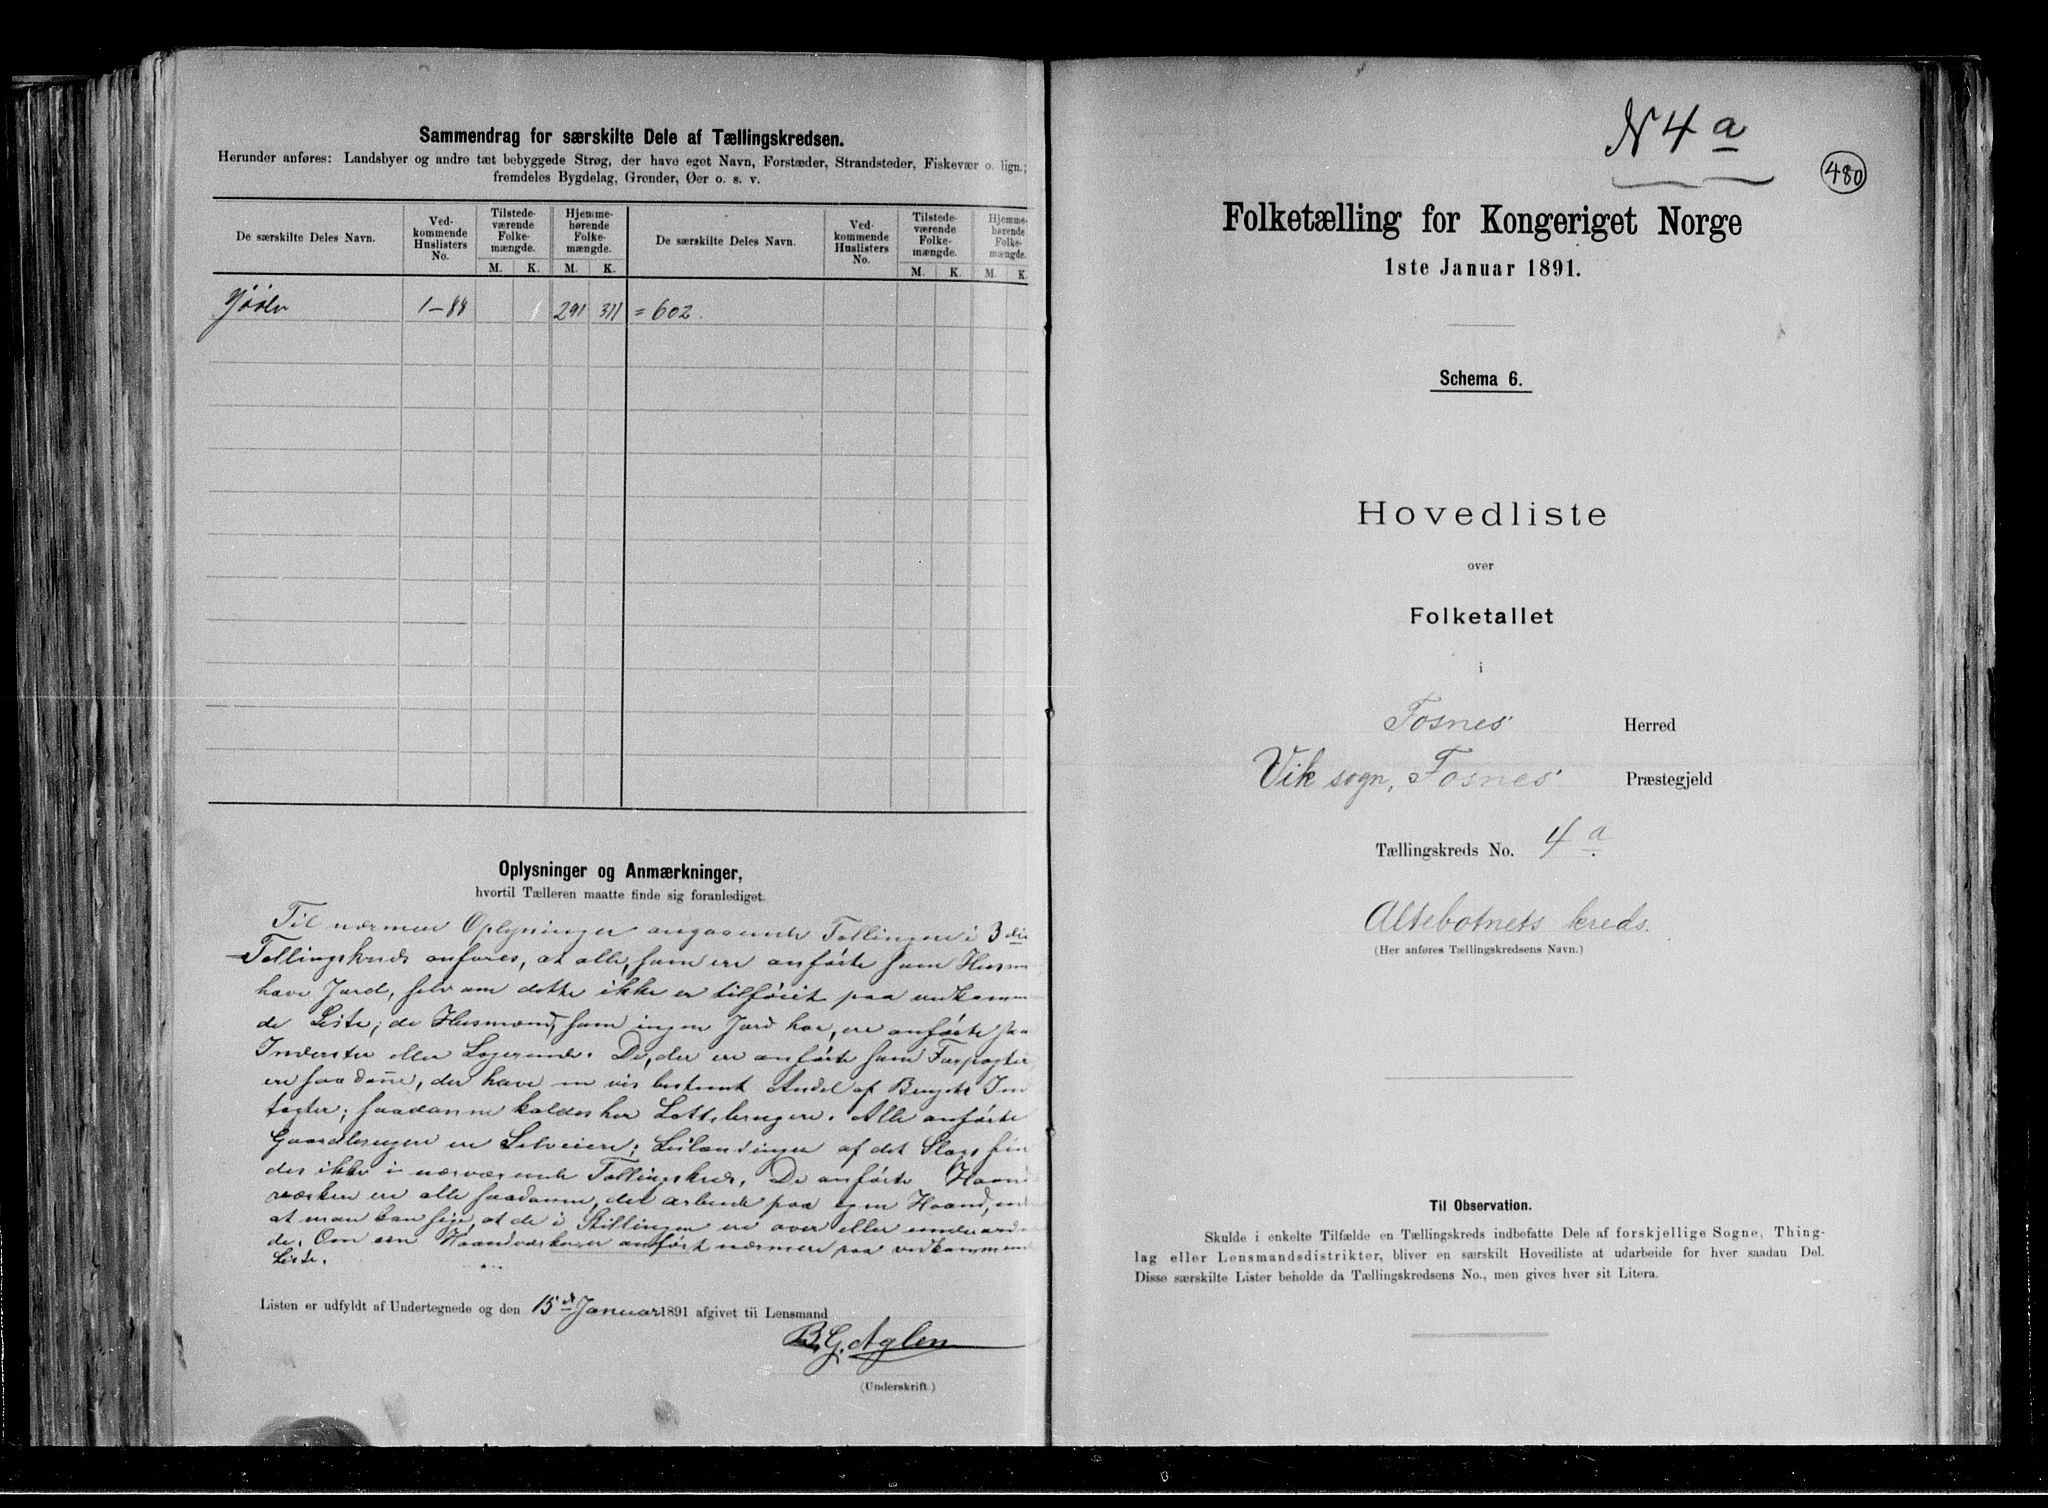 Sammendrag for særskilte Dele af Tællingskredsen.
Herunder anføres: Landsbyer og andre tæt bebyggede Strøg, der have eget Navn, Forstæder, Strandsteder, Fiskevær o. lign.;
fremdeles Bygdelag, Grender, Øer o. s. v.
De særskilte Deles Navn.
Ved-
kommende
Huslisters
No.
Tilstede-
værende
Folke-
mængde.
Hjemme-
hørende
Folke-
mængde.
M. K. M. K.
De særskilte Deles Navn.
Ved-
kommende
Huslisters
No.
Tilstede-
værende
Folke-
mængde.
Hjemme-
hørende
Folke-
mængde.
M. K. M. K.
1-88 291 311 = 602.
Oplysninger og Anmærkninger,
hvortil Tælleren maatte finde sig foranlediget.
Til nærmere Oplysninger angaaende Tællingen i 3die
Tællingskreds anføres, at alle, som ere anførte som
have Jord, selv om dette ikke er tilføiet paa
de Liste; de Husmænd, som ingen Jord har, ere anførte
Inderster eller Logerende. De, der ere anførte som
ere saadanne, der have en vis bestemt Andel af Brugets
saadanne kaldes her Lottebrugere. Alle anførte
Gaardbrugere er Selveiere; Leilændinger af det Slags
des ikke i nærværende Tællingskreds. De anførte
ere alle saadanne, der arbeide paa egen Haand,
at man kan sige, at de i Stillingen er over eller
de. Om en anført nærmere paa
Liste.
Listen er udfyldt af Undertegnede og den 15de Januar 1891 afgivet til Lensmand
B. G. Aglen
(Underskrift.)
N 4 a
480
Folketælling for Kongeriget Norge
1ste Januar 1891.
Schema 6.
Hovedliste
over
Folketallet
i
Fosnes Herred
Vik sogn, Fosnes Præstegjeld
Tællingskreds No. 4 a.
Altebotnets kreds.
(Her anføres Tællingskredsens Navn.)
Til Observation.
Skulde i enkelte Tilfælde en Tællingskreds indbefatte Dele af forskjellige Sogne, Thing-
lag eller Lensmandsdistrikter, bliver en særskilt Hovedliste at udarbeide for hver saadan Del.
Disse særskilte Lister beholde da Tællingskredsens No., men gives hver sit Litera.